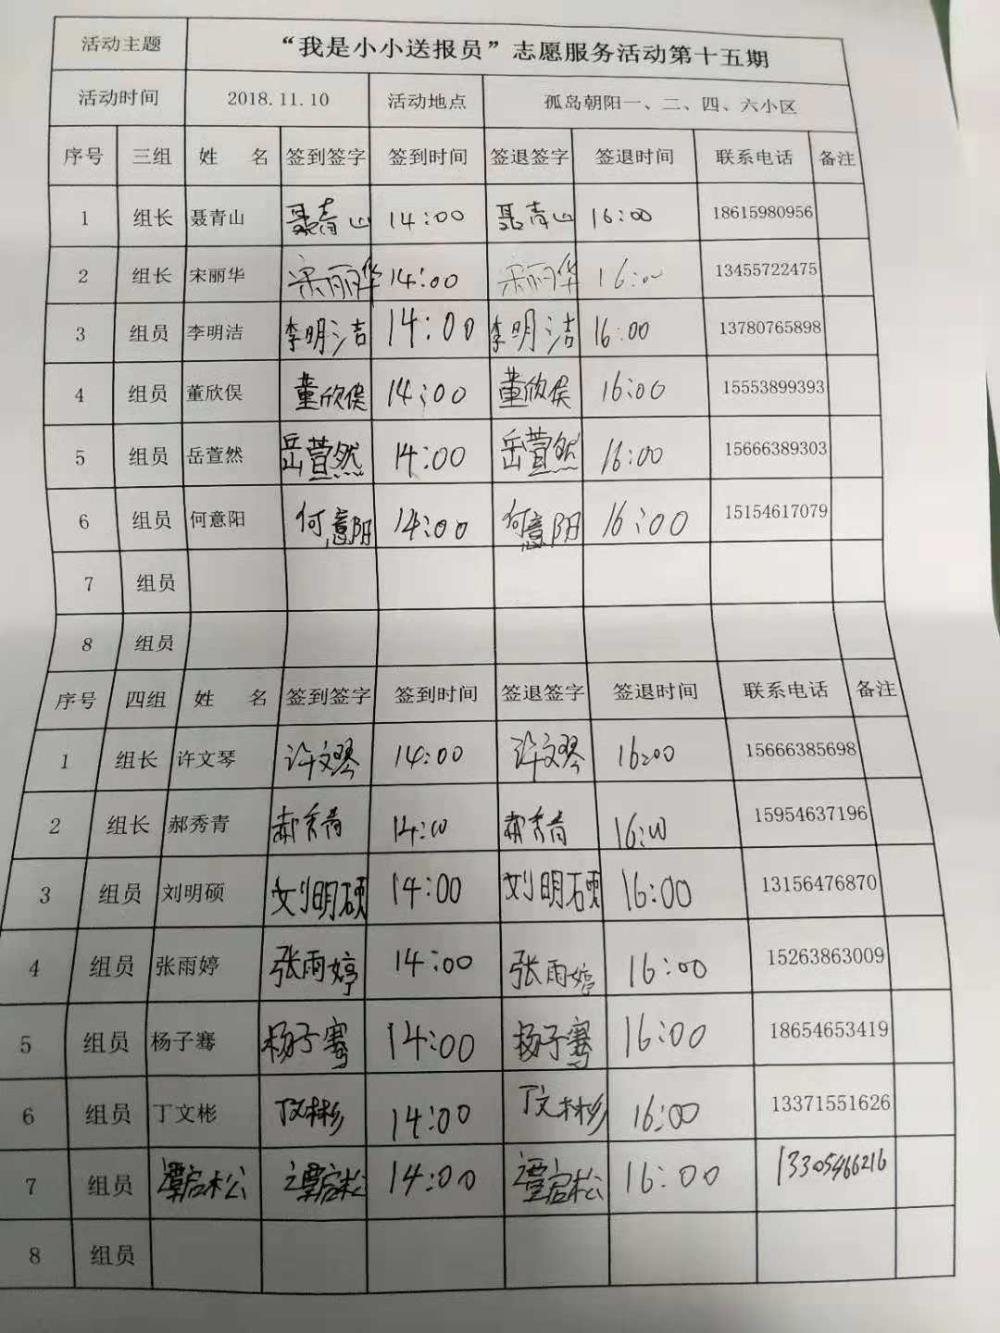 活动主题 “我是小小送报员”志愿服务活动第十五期
活动时间 2018.11.10 活动地点 孤岛朝阳一、二、四、六小区
序号 三组 姓 名 签到签字 签到时间 签退签字 签退时间 联系电话 备注
1 组长 聂青山 聂青山 14:00 聂青山 16:00 18615980956
2 组长 宋丽华 宋丽华 14:00 宋丽华 16:00 13455722475
3 组员 李明洁 李明洁 14:00 李明洁 16:00 13780765898
4 组员 董欣俣 董欣俣 14:00 董欣俣 16:00 15553899393
5 组员 岳萱然 岳萱然 14:00 岳萱然 16:00 15666389303
6 组员 何意阳 何意阳 14:00 何意阳 16:00 15154617079
7 组员
8 组员
序号 四组 姓 名 签到签字 签到时间 签退签字 签退时间 联系电话 备注
1 组长 许文琴 许文琴 14:00 许文琴 16:00 15666385698
2 组长 郝秀青 郝秀青 14:00 郝秀青 16:00 15954637196
3 组员 刘明硕 刘明硕 14:00 刘明硕 16:00 13156476870
4 组员 张雨婷 张雨婷 14:00 张雨婷 16:00 15263863009
5 组员 杨子骞 杨子骞 14:00 杨子骞 16:00 18654653419
6 组员 丁文彬 丁文彬 14:00 丁文彬 16:00 13371551626
7 组员 谭启松 谭启松 14:00 谭启松 16:00 13305466216
8 组员